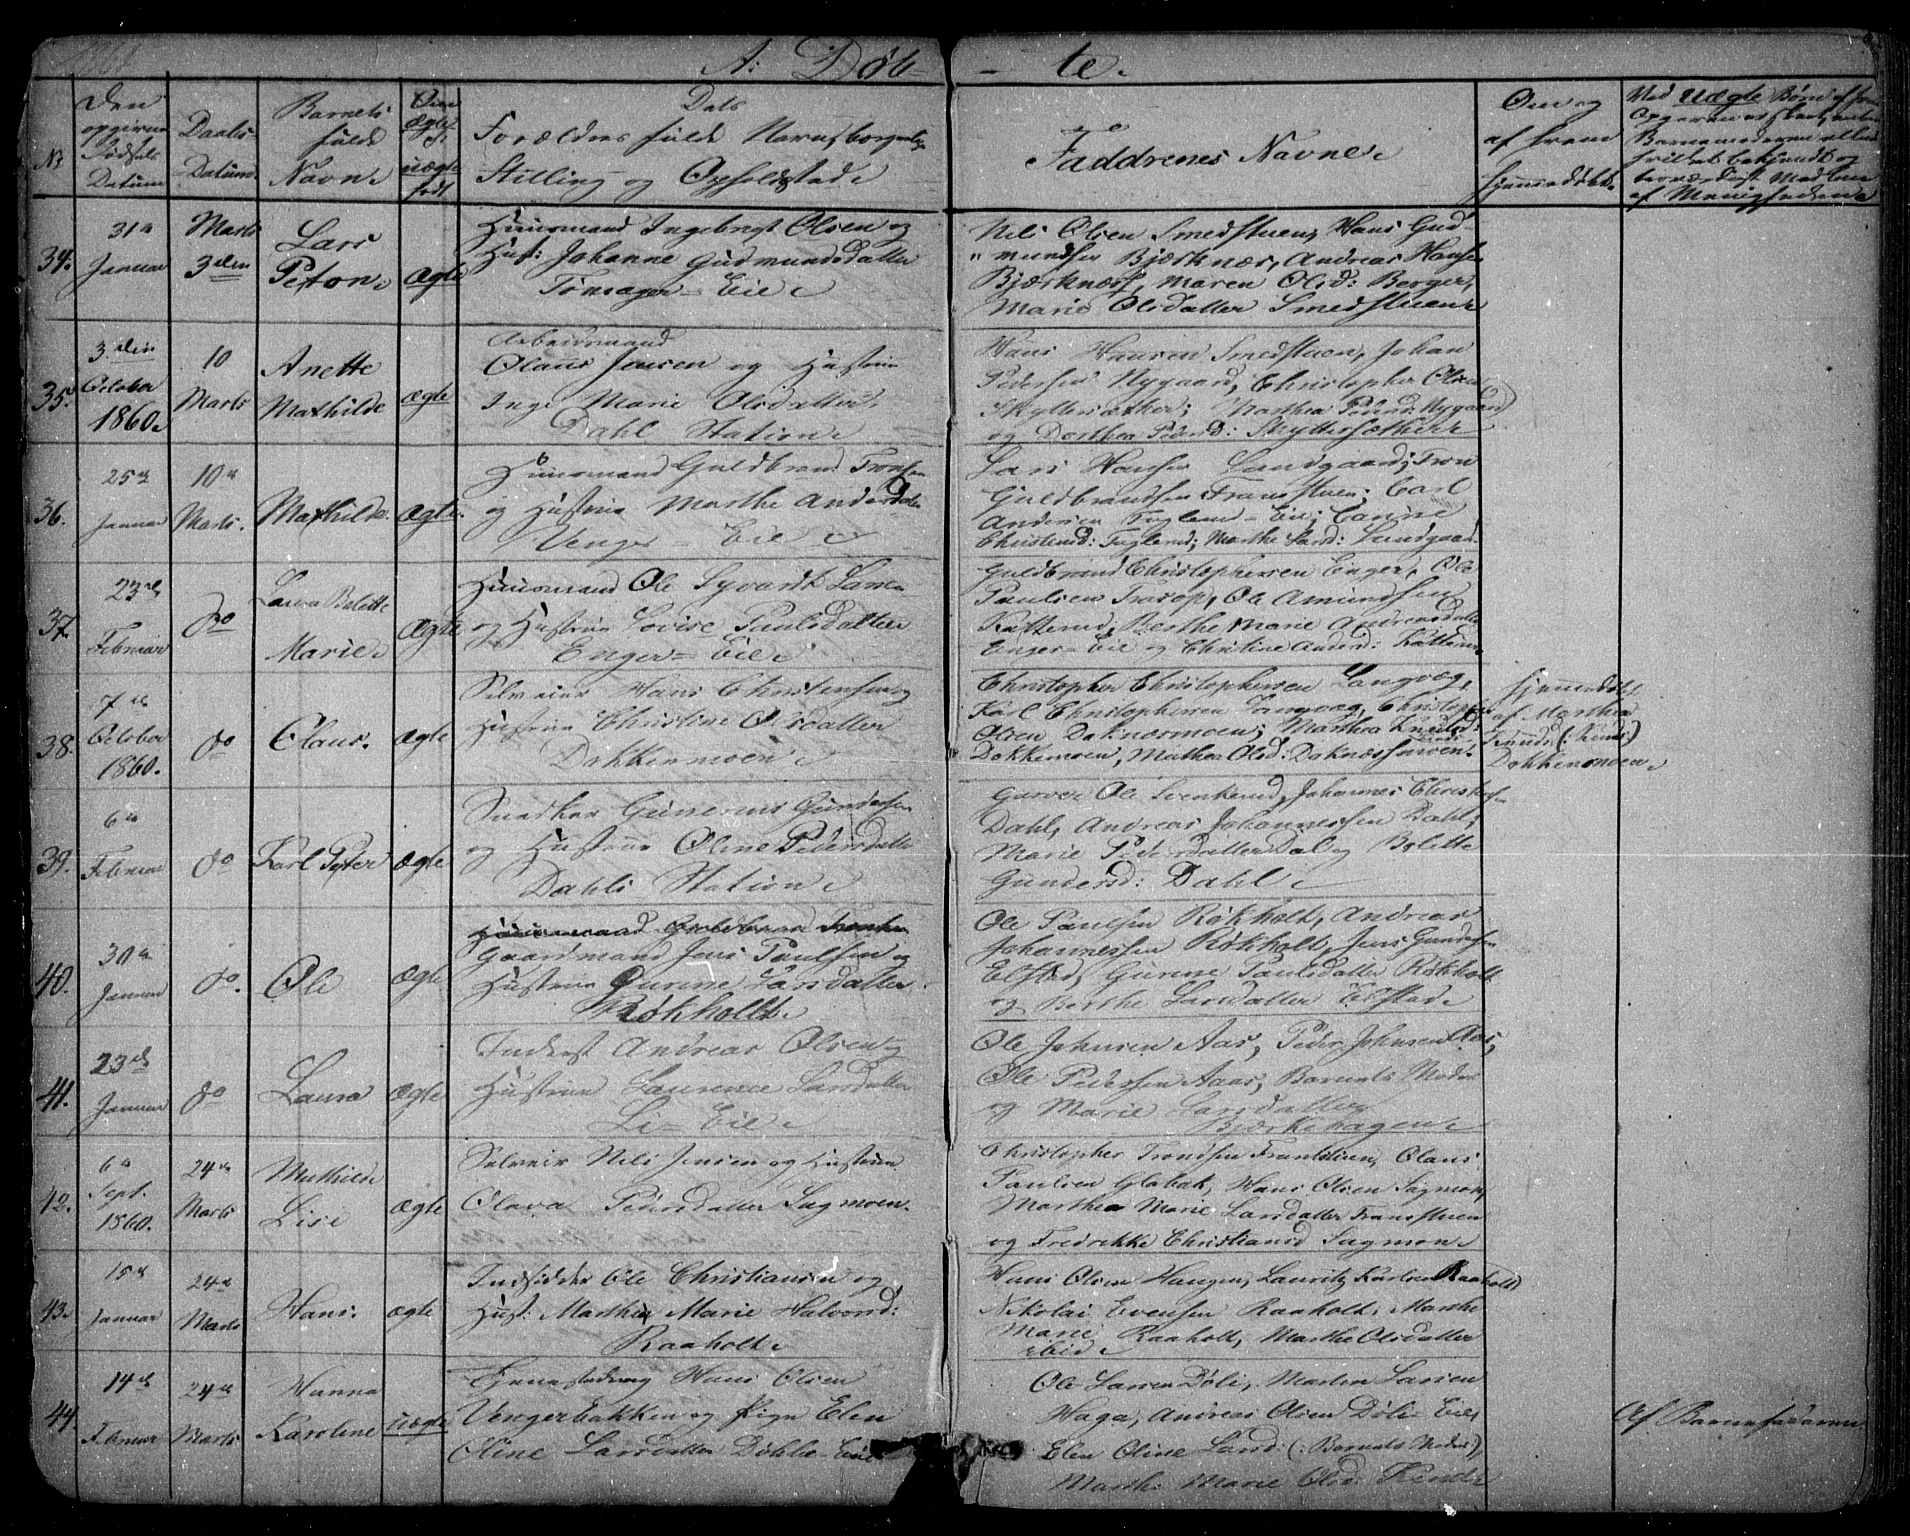 1861
A: Døb- te.
Nr
Den opgivne Fødsels Datum
Daabs Datum
Barnets fulde Navn
Om ægte ell. uægte født
Forældres fulde Navn
Stilling og Opholdsted
Faddrenes Navne
Om og af hvem hjemmedøbt
Ved Uægte Børn
34.
31te Januar
Marts 3den
Lars Peton
Ægte
Huusmand Ingebregt Olsen og
Hust: Johanne Gudmundsdatter
Eie
Nils Olsen Smedstuen, Hans Gud-
" mundsen Bjærknæs, Andreas Hansen
Bjærknæs, Maren Olsd: Berger,
Marie Olsdatter Smedstuen
35.
3den October 1860.
10 Marts
Anette Mathilde
ægte
Arbeidsmand
Olaus Jensen og Hustrue
Inge Marie Olsdatter
Dahl Station
Hans Hansen Smedstuen, Johan
Pedersen Nygaard, Christopher Olsen
Skyttersæther; Marthea Peders: Nygaard
og Dorthea Pedersd: Skyttersæther
36.
25de Januar
10de Marts.
Mathilde
Ægte.
Huusmand Guldbrand Tronsen
og Hustrue Marthe Andersdatter
Venger Eie
Lars Hansen Sundgaard; Tron
Guldbrandsen Tronsstuen; Carl
Andersen Fuglerud Eie;
Christensd: Fuglerud; Marthe Larsd: Sundgaard
37.
23de Februar
do
Laura Bolette Marie
Ægte
Huusmand Ole Syvardt Larsen
og Hustrue Lovise Paulsdatter
Enger Eie
Guldbrand Christophersen Enger, Ole
Paulsen Trosop, Ole Amundsen
Katterud, Berthe Marie Andreasdatter
Enger-Eie og Christine Andersd: Katterud
38.
7de October 1860.
do
Olaus.
Ægte
Selveier Hans Christensen og
Hustrue Christine Olsdatter
Dokkenmoen
Christopher Christophersen Langvæg,
Karl Christophersen Langvæg, Christopher
Olsen Doknæsmoen; Marthea Knudsd:
Dokkemoen, Mathea Olsd: Doknæsmoen.
hjemmedøbt
af Marthea
Knudsd
Dokkenmoen
39.
6te Februar
do
Karl Peter
Ægte
Snedker Gunerius Gundersen
og Hustrue Oline Pedersdatter
Dahls Station
Garver Ole Svenkerud, Johannes Christofersen
Dahl, Andreas Johannessen Dahl;
Marie Pedersdatter Dal og Bolette
Gundersd: Dahl
40.
30te Januar
do.
Ole
Ægte
Gaardmand Jens Paulsen og
Hustrue Gurine Larsdatter
Røkholt
Ole Paulsen Røkholt, Andreas
Johannessen Røkholt, Jens Gundersen
Elstad, Gurine Paulsdatter Røkholt
og Berthe Larsdatter Elstad
41.
23de Januar
do
Laura
Ægte
Inderst Andreas Olsen og
Hustrue Laurence Larsdatter
Li-Eie
Ole Johnsen Aas, Peder Johnsen Aas,
Ole Pedersen Aas, Barnets Moder
og Marie Larsdatter
Bjærkehagen
42.
6te Sept. 1860.
24de Marts
Mathilde Lise
Ægte
Selveier Nils Jensen og Hustrue
Olava Pedersdatter Sagmoen.
Christopher Trondsen Tronsstuen, Olaus
Paulsen Globak, Hans Olsen Sagmoen,
Marthea Marie Larsdatter Tronsstuen
og Fredrekke Christiansd Sagmoen
43.
15de Januar
24de Marts
Hans.
ægte
Indsidder Ole Christiansen og
Hust: Marthea Marie Halvorsd:
Raaholt
Hans Olsen Haugen, Lauritz Karlsen Raaholt
Nikolai Evensen Raaholt, Marthe
Marie Raaholt, Marthe Olsdatter
ibid
44.
14de Februar
24de Marts
Hanna Karoline
uægte
Tjenestedreng Hans Olsen
Vengerbakken og Pige Elen
Oline Larsdatter Døhle-Eie
Ole Larsen Døli, Morten Larsen
Haga, Andreas Olsen Døli-Eie,
Elen Oline Larsd: (: Barnets Moder),
Marthe Marie Olsd:
Af Barnefaderen